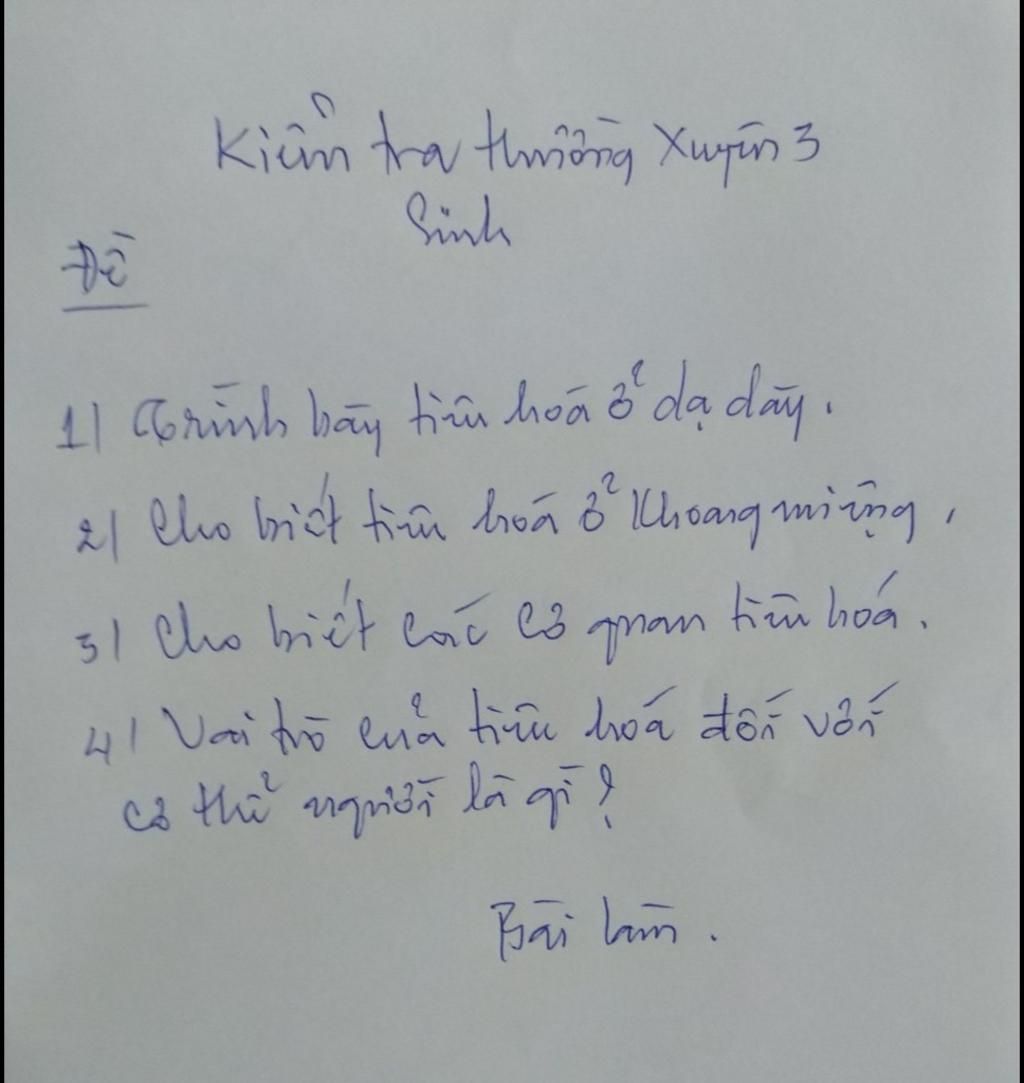 Kiểm tra thường xuyên 3
Sinh
Đề
1) Trình bày tiêu hoá ở dạ dày.
2) Cho biết tiêu hoá ở khoang miệng,
3) Cho biết các cơ quan tiêu hoá.
4) Vai trò của tiêu hoá đối với
cơ thể người là gì?
Bài làm.